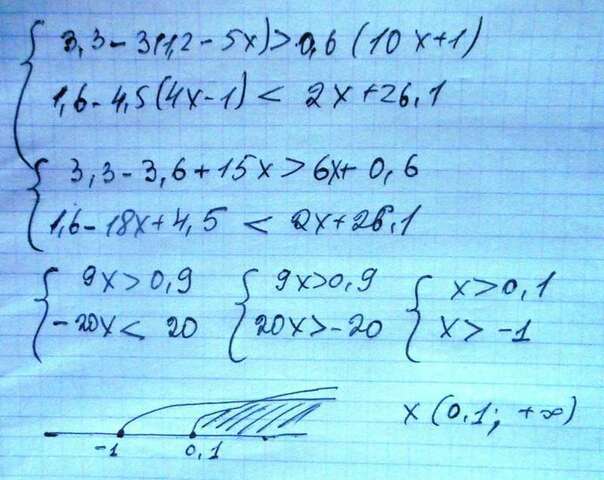 3,3-3(1,2-5x)>0,6(10x+1)
1,6-4,5(4x-1)< 2x+26,1
3,3-3,6+15x>6x+0,6
1,6-18x+4,5 < 2x+26,1
9x>0,9 9x>0,9 x>0,1
-20x< 20 20x>-20 x>-1
x(0,1; +∞)
-1 0,1